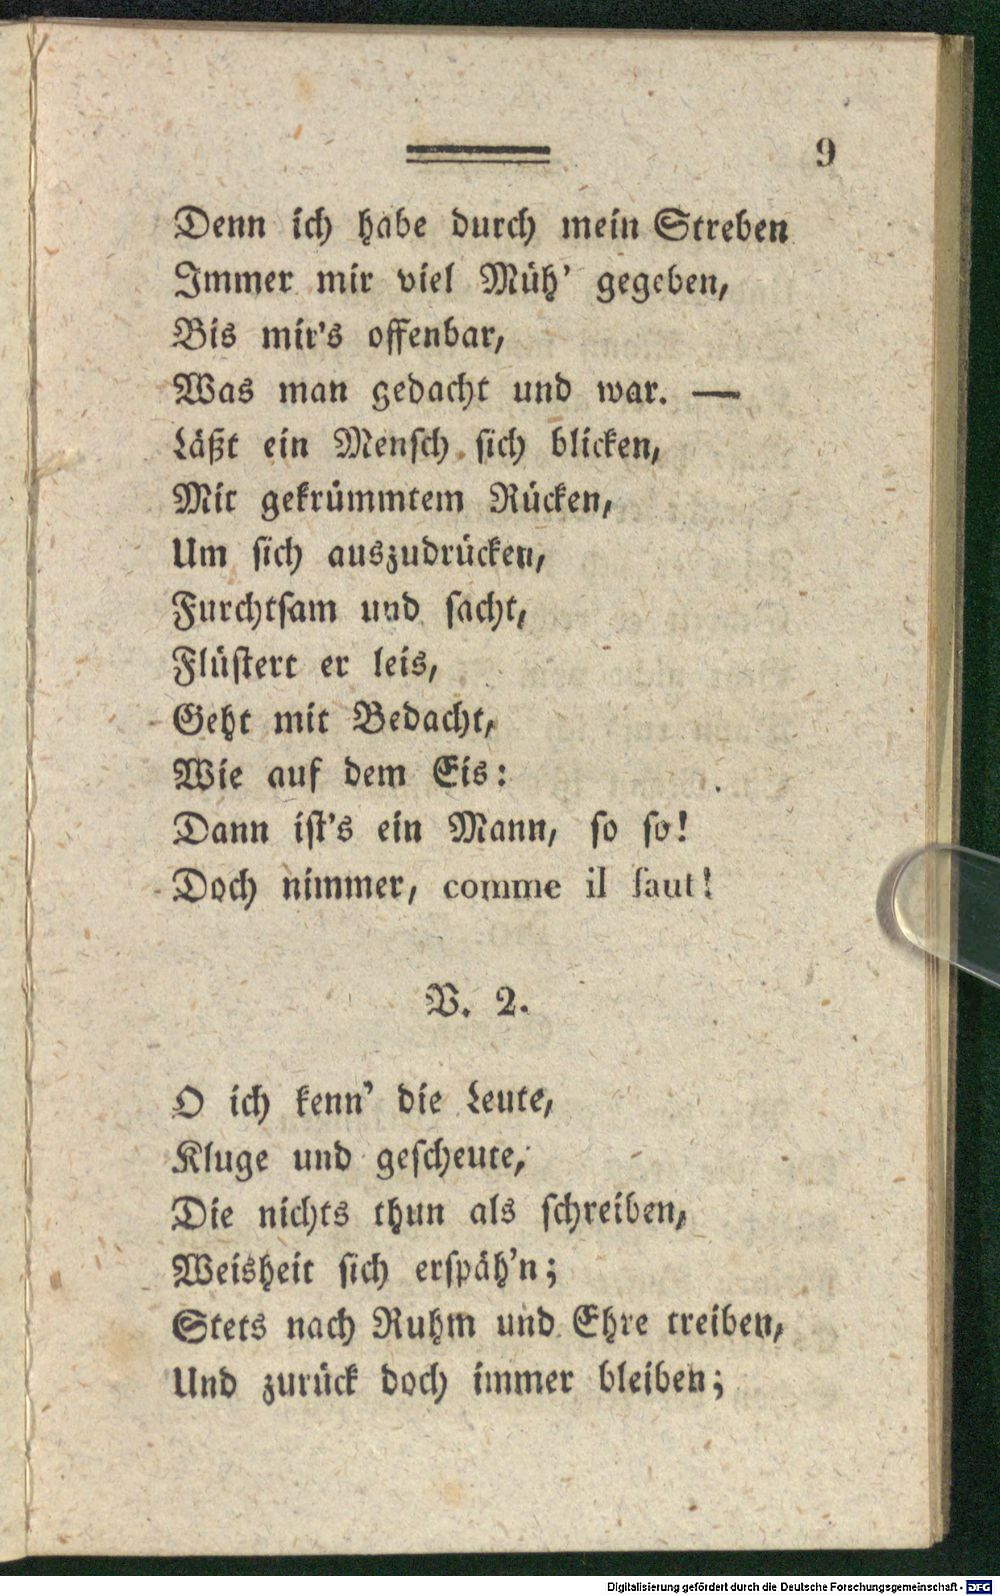 9
Denn ich habe durch mein Streben
Immer mir viel Müh' gegeben,
Bis mir's offenbar,
Was man gedacht und war. —
Läßt ein Mensch sich blicken,
Mit gekrümmtem Rücken,
Um sich auszudrücken,
Furchtsam und sacht,
Flüstert er leis,
Geht mit Bedacht,
Wie auf dem Eis:
Dann ist's ein Mann, so so!
Doch nimmer, comme il faut!
V. 2.
O ich kenn' die Leute,
Kluge und gescheute,
Die nichts thun als schreiben,
Weisheit sich erspäh'n;
Stets nach Ruhm und Ehre treiben,
Und zurück doch immer bleiben;
Digitalisierung gefördert durch die Deutsche Forschungsgemeinschaft - DFG